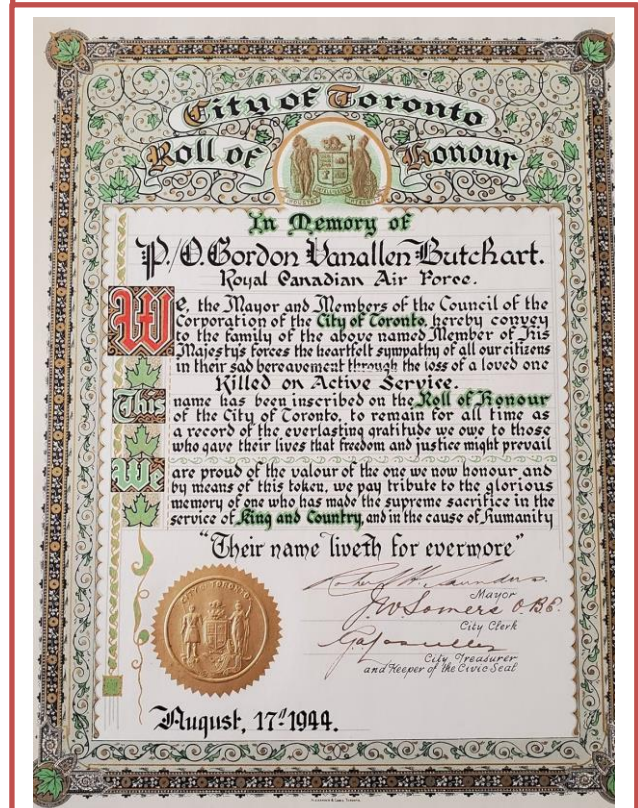 City of Toronto
Roll of Honour
INDUSTRY INTELLIGENCE INTEGRITY
In Memory of
P./O. Gordon Vanallen Butchart.
Royal Canadian Air Force.
We, the Mayor and Members of the Council of the
Corporation of the City of Toronto, hereby convey
to the family of the above named Member of His
Majesty's forces the heartfelt sympathy of all our citizens
in their sad bereavement through the loss of a loved one
Killed on Active Service.
This name has been inscribed on the Roll of Honour
of the City of Toronto, to remain for all time as
a record of the everlasting gratitude we owe to those
who gave their lives that freedom and justice might prevail
We are proud of the valour of the one we now honour, and
by means of this token, we pay tribute to the glorious
memory of one who has made the supreme sacrifice in the
service of King and Country, and in the cause of Humanity
"Their name liveth for evermore"
Robert H. Saunders.
Mayor
J.W. Somers O.B.E.
City Clerk
City Treasurer
and Keeper of the Civic Seal
CITY TORONTO
August, 17th 1944.